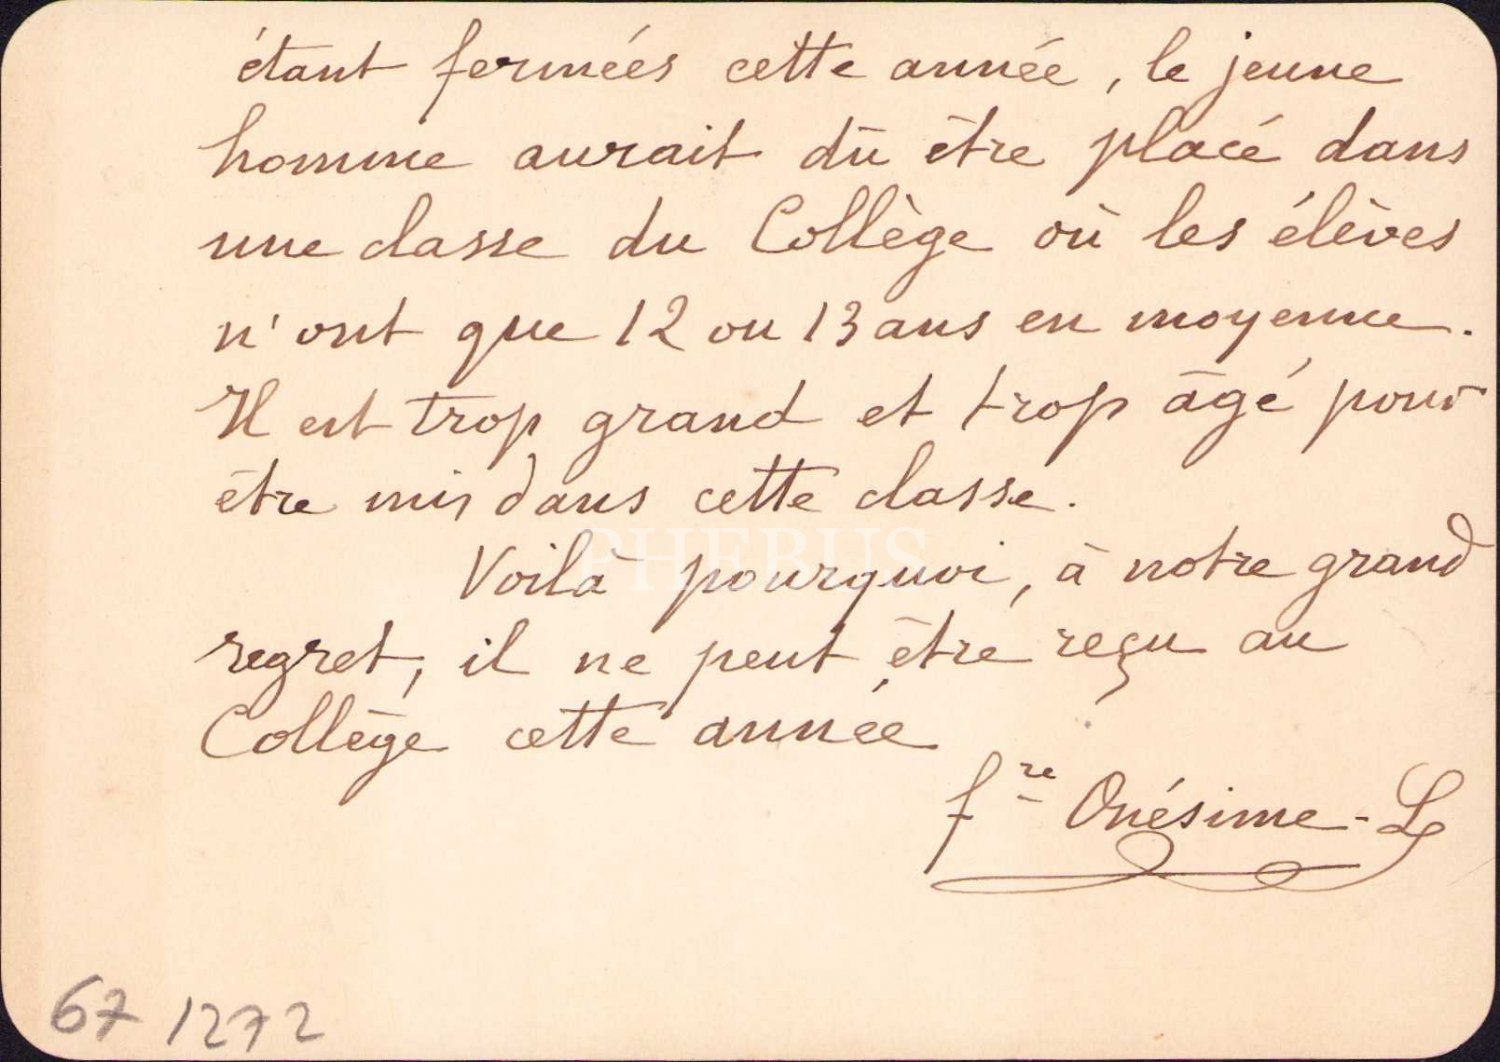 étant fermées cette année, le jeune
homme aurait dû être placé dans
une classe du Collège où les élèves
n'ont que 12 ou 13 ans en moyenne.
Il est trop grand et trop âgé pour
être mis dans cette classe.
PHEBUS
Voilà pourquoi, à notre grand
regret, il ne peut être reçu au
Collège cette année
fre Onésime-L
67 1272